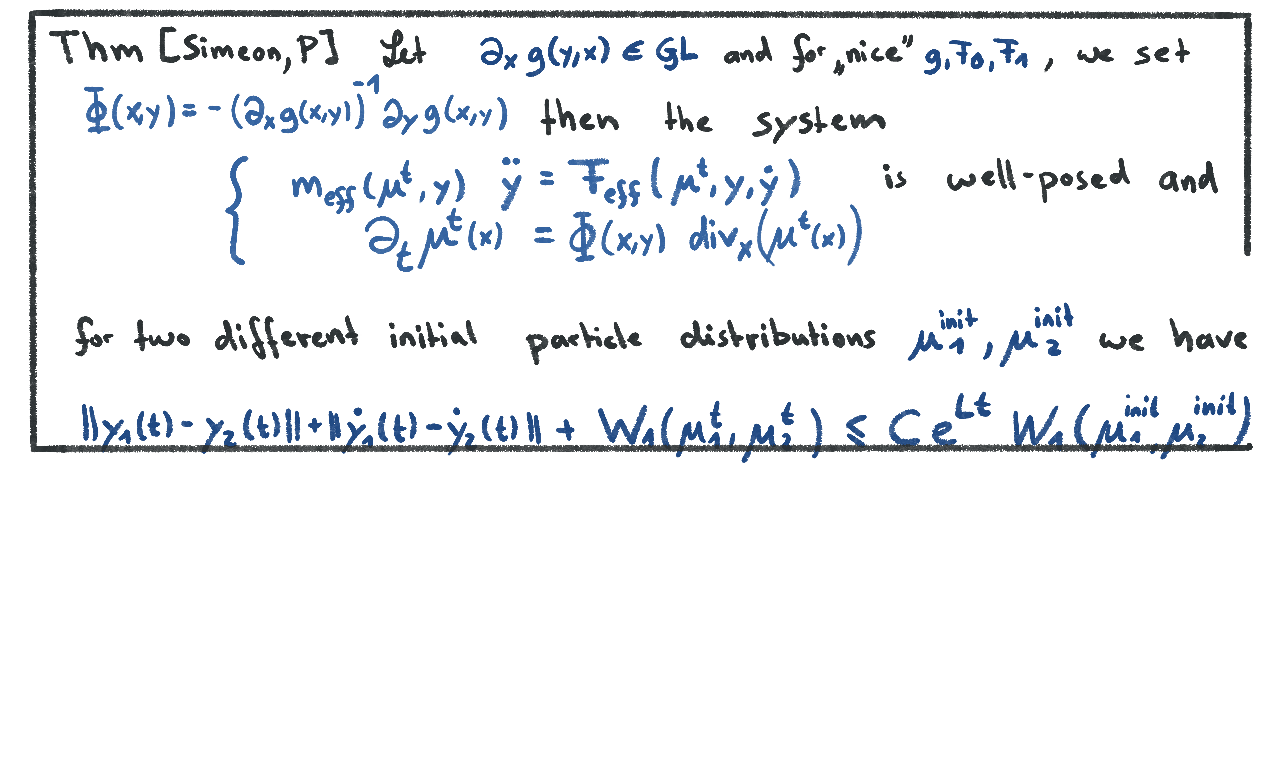 Thm [Simeon, P] Let ∂ₓ g(y,x) ∈ GL and for „nice" g, F₀, F₁, we set
Φ(x,y) = - (∂ₓg(x,y))⁻¹ ∂ᵧ g(x,y) then the system
{ m_eff(μᵗ, y) ÿ = F_eff(μᵗ, y, ẏ) is well-posed and
∂ₜ μᵗ(x) = Φ(x,y) divₓ(μᵗ(x))
for two different initial particle distributions μ₁^init, μ₂^init we have
||y₁(t) - y₂(t)|| + ||ẏ₁(t) - ẏ₂(t)|| + W₁(μ₁ᵗ, μ₂ᵗ) ≤ C e^{Lt} W₁(μ₁^init, μ₂^init)